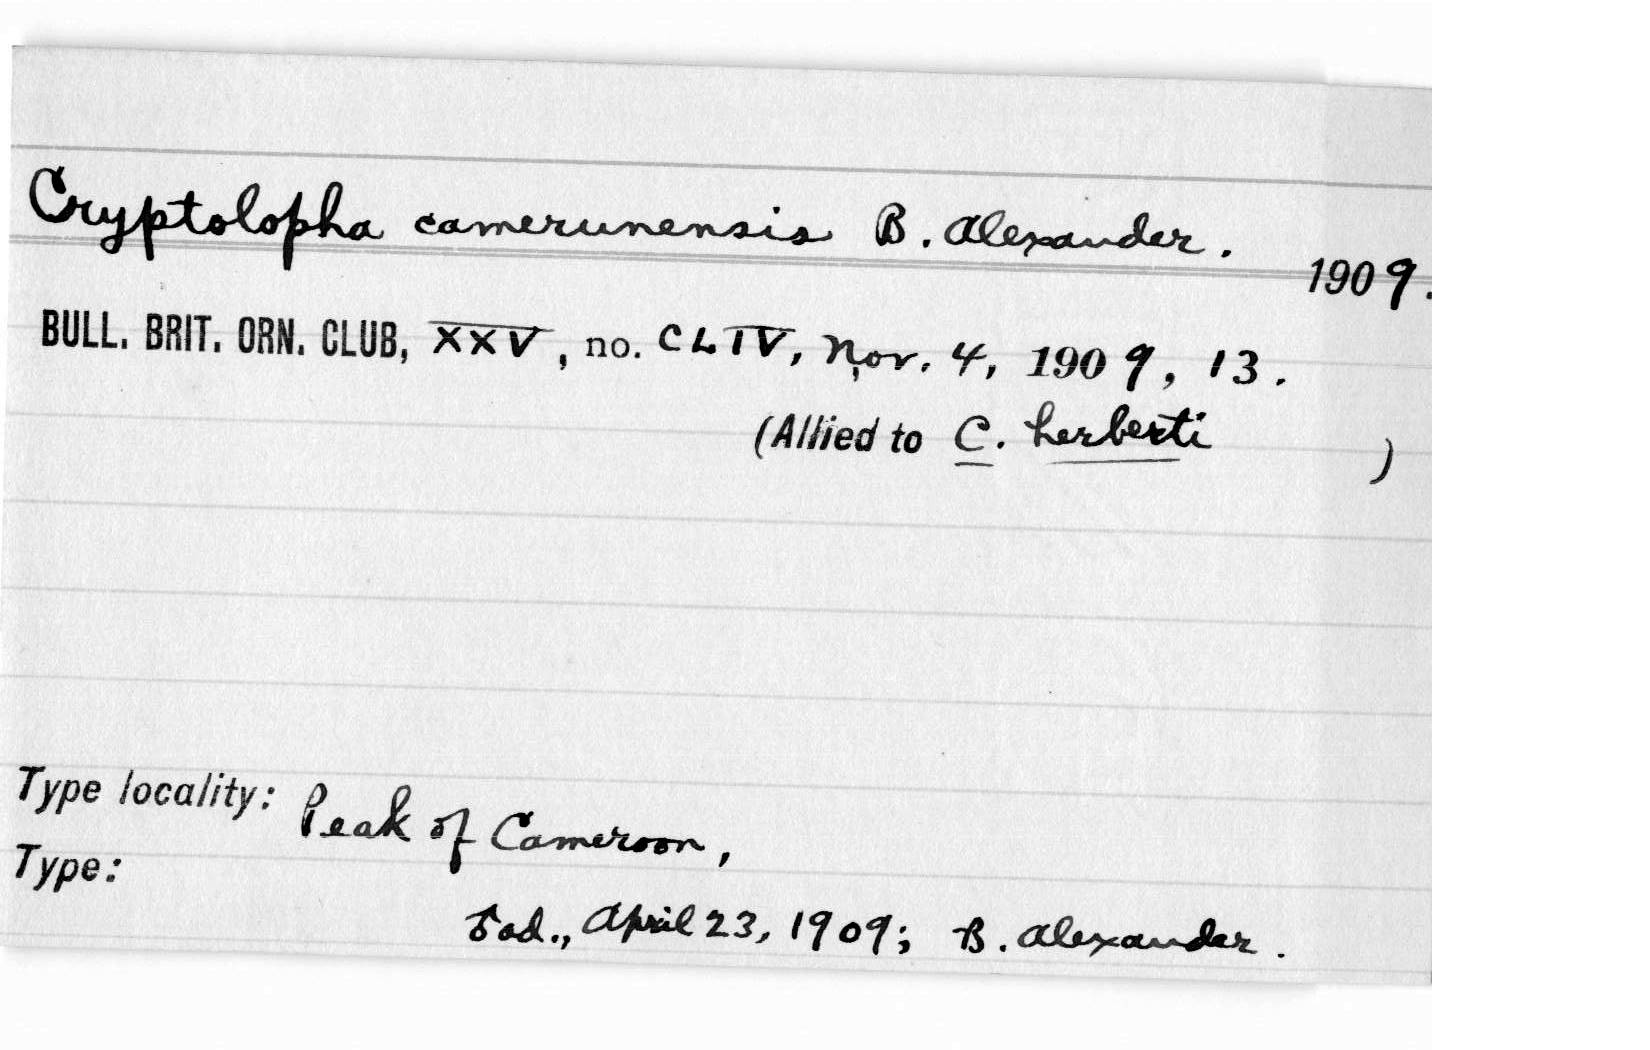 Cryptolopha camerunensis B. Alexander. 1909.
BULL. BRIT. ORN. CLUB, XXV, no. CLIV, Nov. 4, 1909, 13.
(Allied to C. herberti )
Type locality: Peak of Cameroon,
Type:
♂ ad., April 23, 1909; B. Alexander.